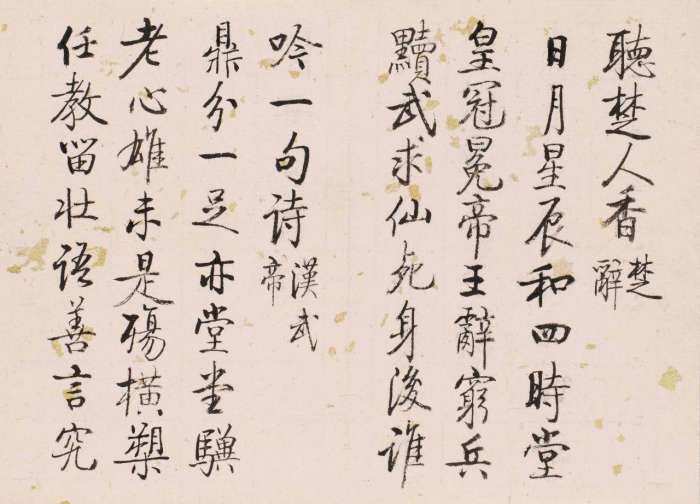 聽楚人香楚辭
日月星辰和四時堂
皇冠冕帝王辭窮兵
黷武求仙死身後誰
吟一句詩漢武帝
鼎分一足亦堂堂驥
老心雄未是殤橫槊
任教留壯語善言究